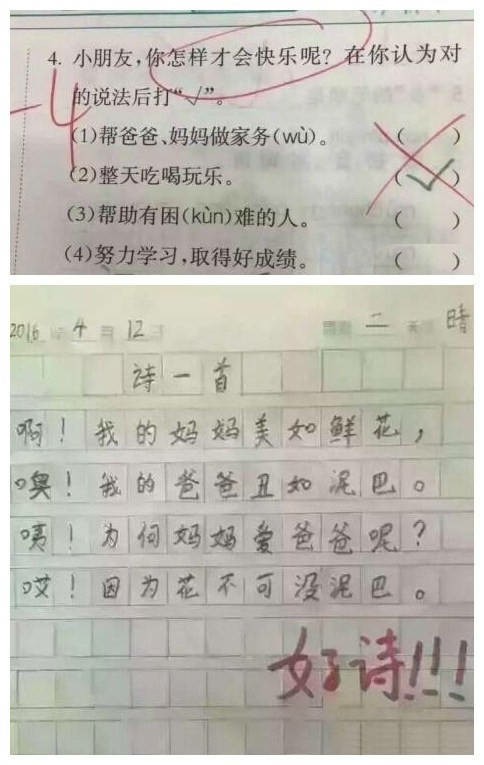 4. 小朋友,你怎样才会快乐呢?在你认为对
的说法后打“√”。
-4
(1)帮爸爸、妈妈做家务(wù)。 ( )
(2)整天吃喝玩乐。 (√)
(3)帮助有困(kùn)难的人。 ( )
(4)努力学习,取得好成绩。 ( )
2016 年 4 月 12 日 星期 二 天气 晴
诗一首
啊!我的妈妈美如鲜花,
噢!我的爸爸丑如泥巴。
咦!为何妈妈爱爸爸呢?
哎!因为花不可没泥巴。
好诗!!!